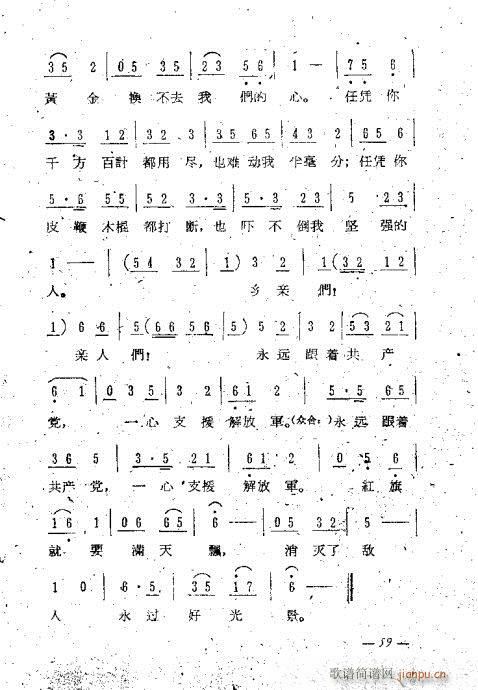 3 5 2 | 0 5 3 5 | 2 3 5 6 | 1 — | 7 5 6
黃 金 換 不去 我 們的 心。 任凭 你
3 · 3 1 2 | 3 2 3 5 | 3 5 6 5 | 4 3 2 | 0 6 5 6
千 方 百計 都用 尽，也难 动我 半毫 分；任凭 你
5 · 6 5 5 | 3 5 2 | 3 · 3 0 3 | 2 3 5 5 | 5 2 3
皮 鞭 木棍 都打 断，也 吓 不 倒我 坚 强的
1 — | (5 4 3 2 | 1) 3 | 3 2 | 1 (3 2 1 2
人。 乡 亲 們！
1) 6 6 | 5 (6 6 5 6 | 5) 3 | 3 2 | 5 3 2 1
亲 人 們！ 永 远 跟 着 共 产
6 1 | 0 3 5 | 3 2 | 6 1 2 | 5 · 5 6 5
党， 一 心 支 援 解放 軍。(众合：)永 远 跟着
3 6 5 | 3 · 5 2 1 | 6 1 2 | 0 5 6
共产 党， 一 心 支援 解放 軍。 紅 旗
1 6 1 | 0 6 6 5 | 6 — | 0 5 3 2 | 5 —
就 要 满 天 飄， 消 灭 了 敌
1 0 | 6 · 5 | 3 5 1 7 | 6 — ‖
人 永 过 好 光 景。
— 59 —
歌谱简谱网 jianpu.cn